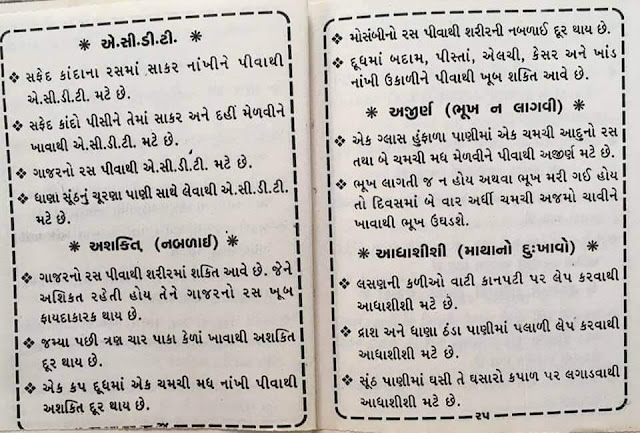 ❋ એ.સી.ડી.ટી. ❋
❖ સફેદ કાંદાના રસમાં સાકર નાંખીને પીવાથી
એ.સી.ડી.ટી. મટે છે.
❖ સફેદ કાંદો પીસીને તેમાં સાકર અને દહીં મેળવીને
ખાવાથી એ.સી.ડી.ટી. મટે છે.
❖ ગાજરનો રસ પીવાથી એ.સી.ડી.ટી. મટે છે.
❖ ધાણા સૂંઠનું ચૂરણા પાણી સાથે લેવાથી એ.સી.ડી.ટી.
મટે છે.
❋ અશકિત (નબળાઈ) ❋
❖ ગાજરનો રસ પીવાથી શરીરમાં શકિત આવે છે. જેને
અશિકત રહેતી હોય તેને ગાજરનો રસ ખૂબ
ફાયદાકારક થાય છે.
❖ જમ્યા પછી ત્રણ ચાર પાકા કેળાં ખાવાથી અશકિત
દૂર થાય છે.
❖ એક કપ દૂધમાં એક ચમચી મધ નાંખી પીવાથી
અશકિત દૂર થાય છે.
❖ મોસંબીનો રસ પીવાથી શરીરની નબળાઈ દૂર થાય છે.
❖ દૂધમાં બદામ, પીસ્તાં, એલચી, કેસર અને ખાંડ
નાંખી ઉકાળીને પીવાથી ખૂબ શકિત આવે છે.
❋ અજીર્ણ (ભૂખ ન લાગવી) ❋
❖ એક ગ્લાસ હુંફાળા પાણીમાં એક ચમચી આદુનો રસ
તથા બે ચમચી મધ મેળવીને પીવાથી અજીર્ણ મટે છે.
❖ ભૂખ લાગતી જ ન હોય અથવા ભૂખ મરી ગઈ હોય
તો દિવસમાં બે વાર અર્ધી ચમચી અજમો ચાવીને
ખાવાથી ભૂખ ઉઘડશે.
❋ આધાશીશી (માથાનો દુઃખાવો) ❋
❖ લસણની કળીઓ વાટી કાનપટી પર લેપ કરવાથી
આધાશીશી મટે છે.
❖ દ્રાશ અને ધાણા ઠંડા પાણીમાં પલાળી લેપ કરવાથી
આધાશીશી મટે છે.
❖ સૂંઠ પાણીમાં ઘસી તે ઘસારો કપાળ પર લગાડવાથી
આધાશીશી મટે છે.
૨૫